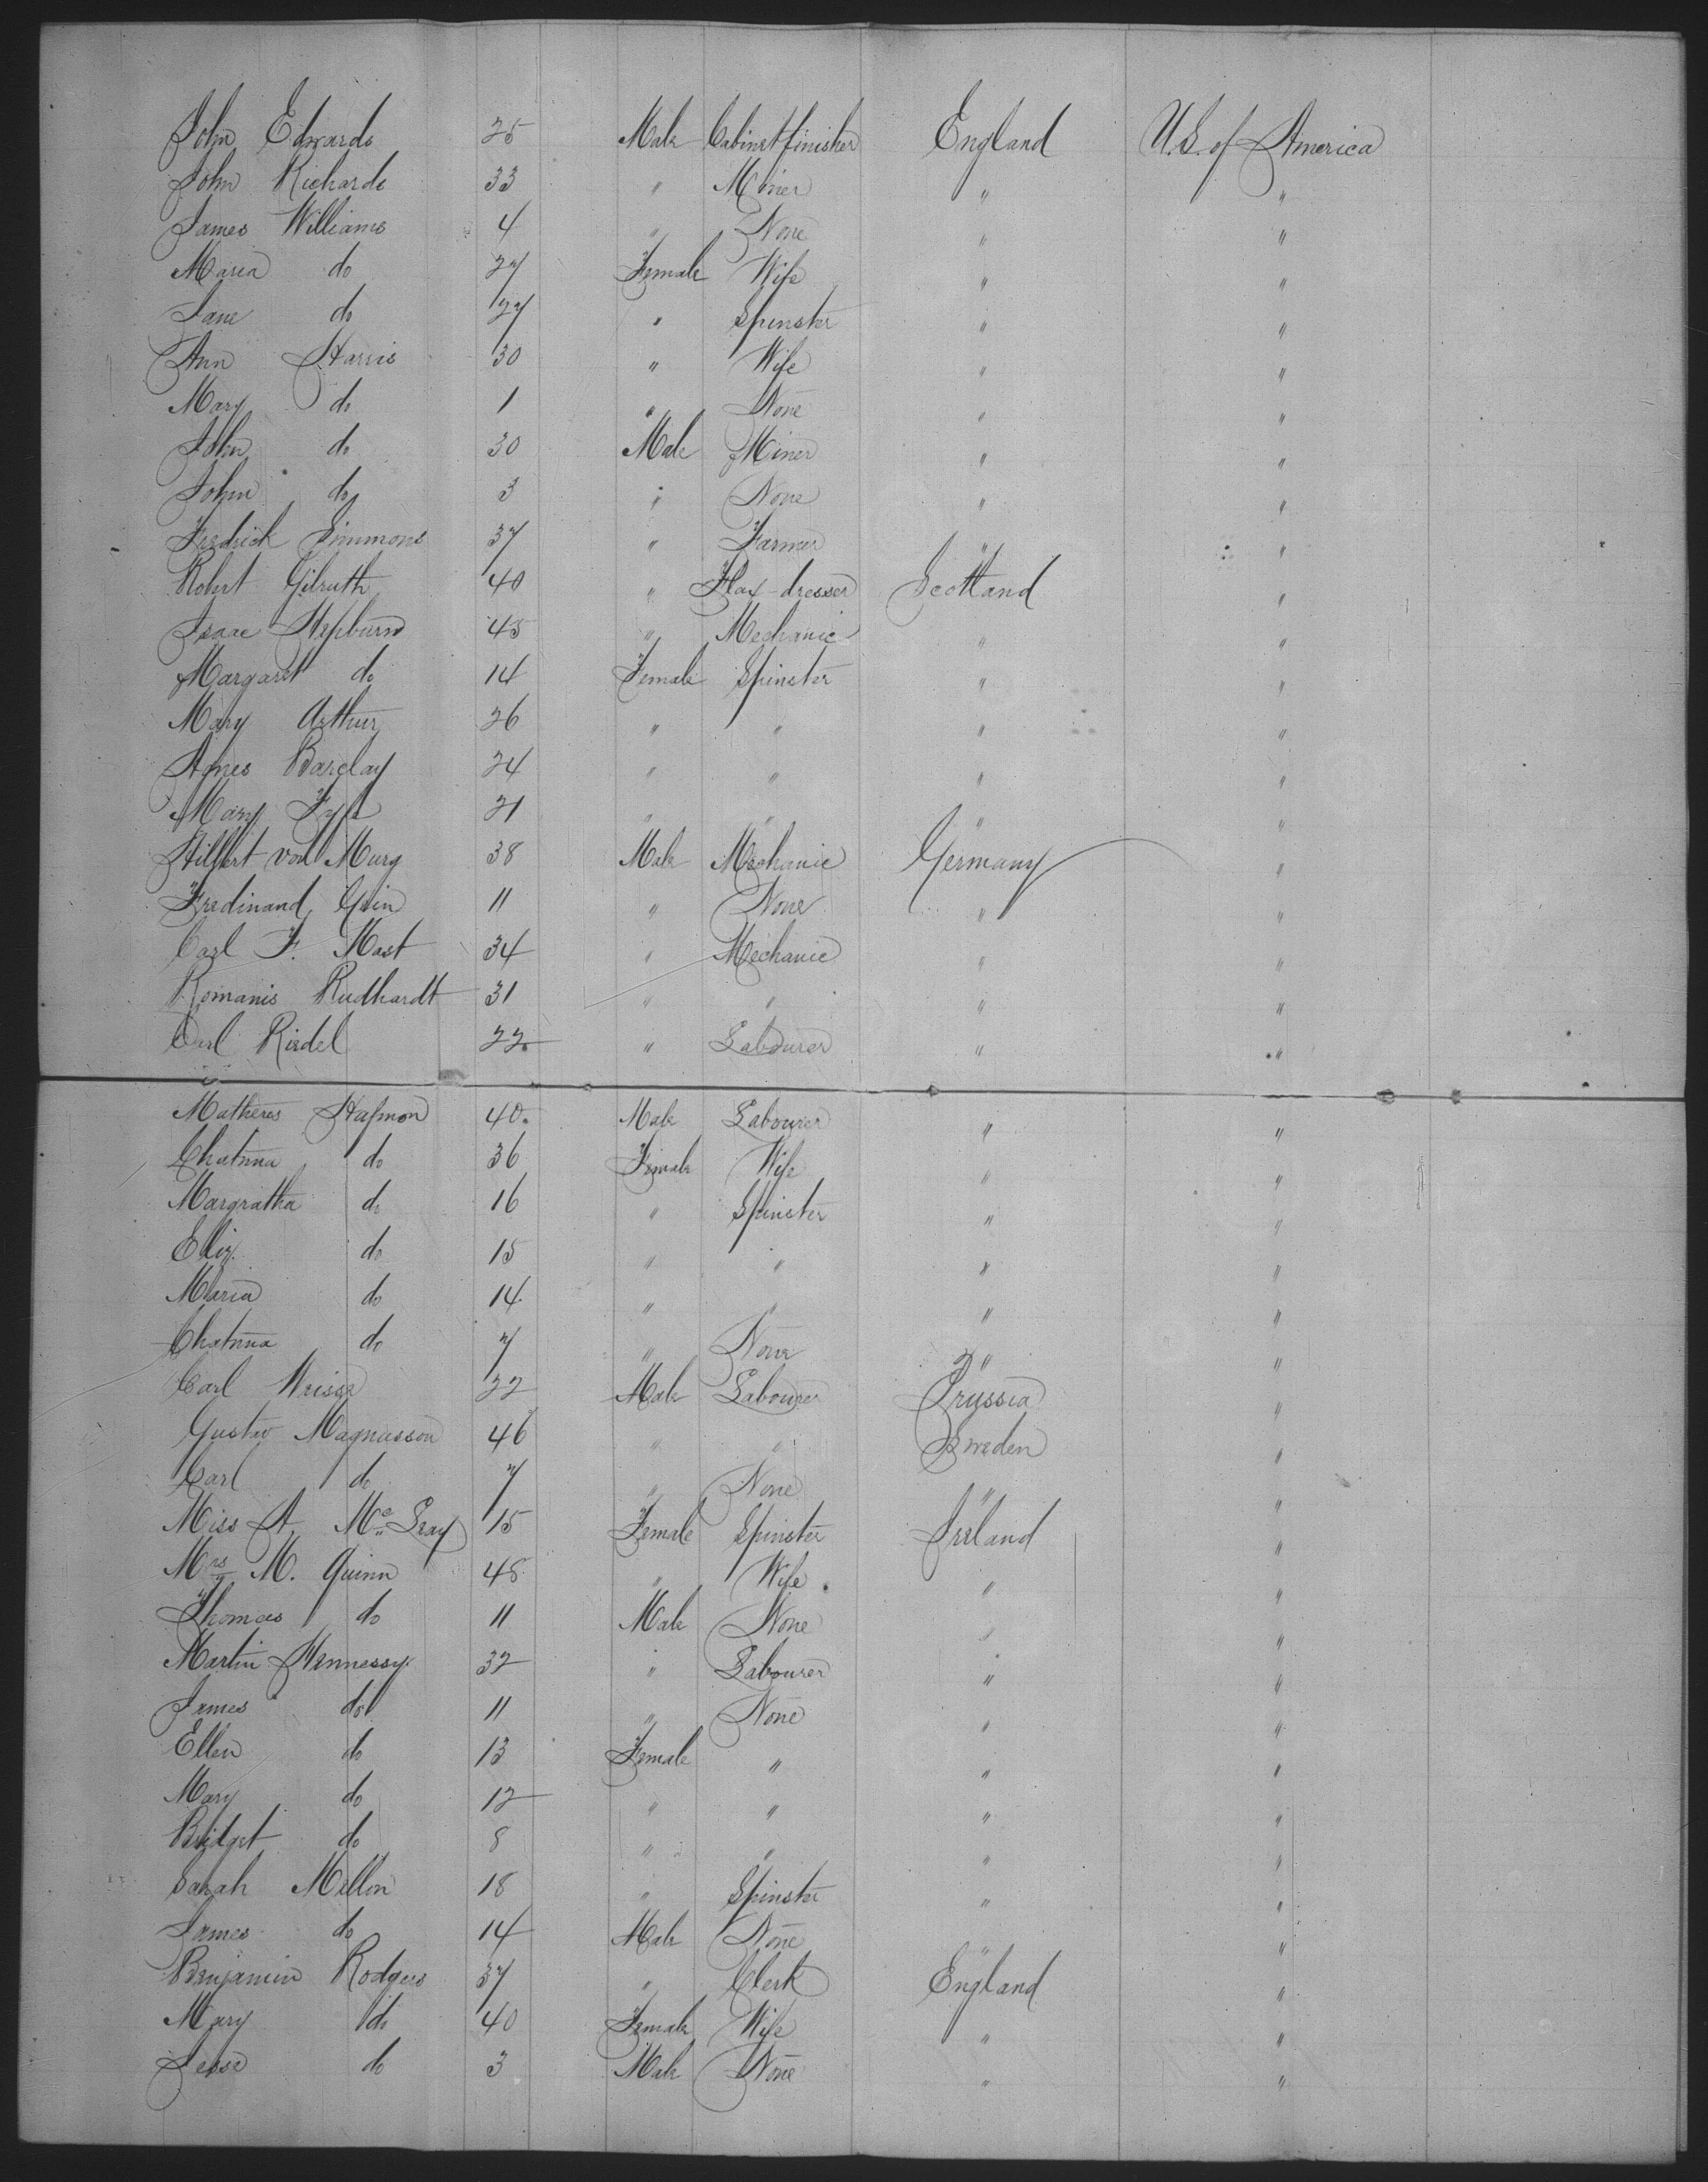 John Edwards 25 Male Cabinet finisher England U.S. of America
John Richards 33 " Miner " "
James Williams 4 " None " "
Maria do 27 Female Wife " "
Jane do 27 " Spinster " "
Ann Harris 30 " Wife " "
Mary do 1 " None " "
John do 30 Male Miner " "
John do 3 " None " "
Fredrick Simmons 37 " Farmer " "
Robert Gilruth 40 " Flax-dresser Scotland "
Isaac Hepburn 45 " Mechanic " "
Margaret do 14 Female Spinster " "
Mary Arthur 26 " " " "
Agnes Barclay 24 " " " "
Mary Fyfe 21 " " " "
von Murg 38 Male Mechanic Germany "
Ferdinand 11 " None " "
Carl F. Mast 34 " Mechanic " "
Romanis Rudhardt 31 " " " "
Carl Riedel 22 " Labourer " "
40. Male Labourer " "
do 36 Female Wife " "
Margratha do 16 " Spinster " "
Eliz. do 15 " " " "
Maria do 14 " " " "
do 7 " None " "
Carl Weisse 22 Male Labourer Prussia "
Gustav Magnusson 46 " " Sweden "
Carl do 7 " None " "
Miss A. 15 Female Spinster Ireland "
Mrs M. Quinn 48 " Wife " "
Thomas do 11 Male None " "
Martin Hennessy 32 " Labourer " "
James do 11 " None " "
Ellen do 13 Female " " "
Mary do 12 " " " "
Bridget do 8 " " " "
Sarah Mellon 18 " Spinster " "
James do 14 Male None " "
Benjamin Rodgers 37 " Clerk England "
Mary do 40 Female Wife " "
Jesse do 3 Male None " "